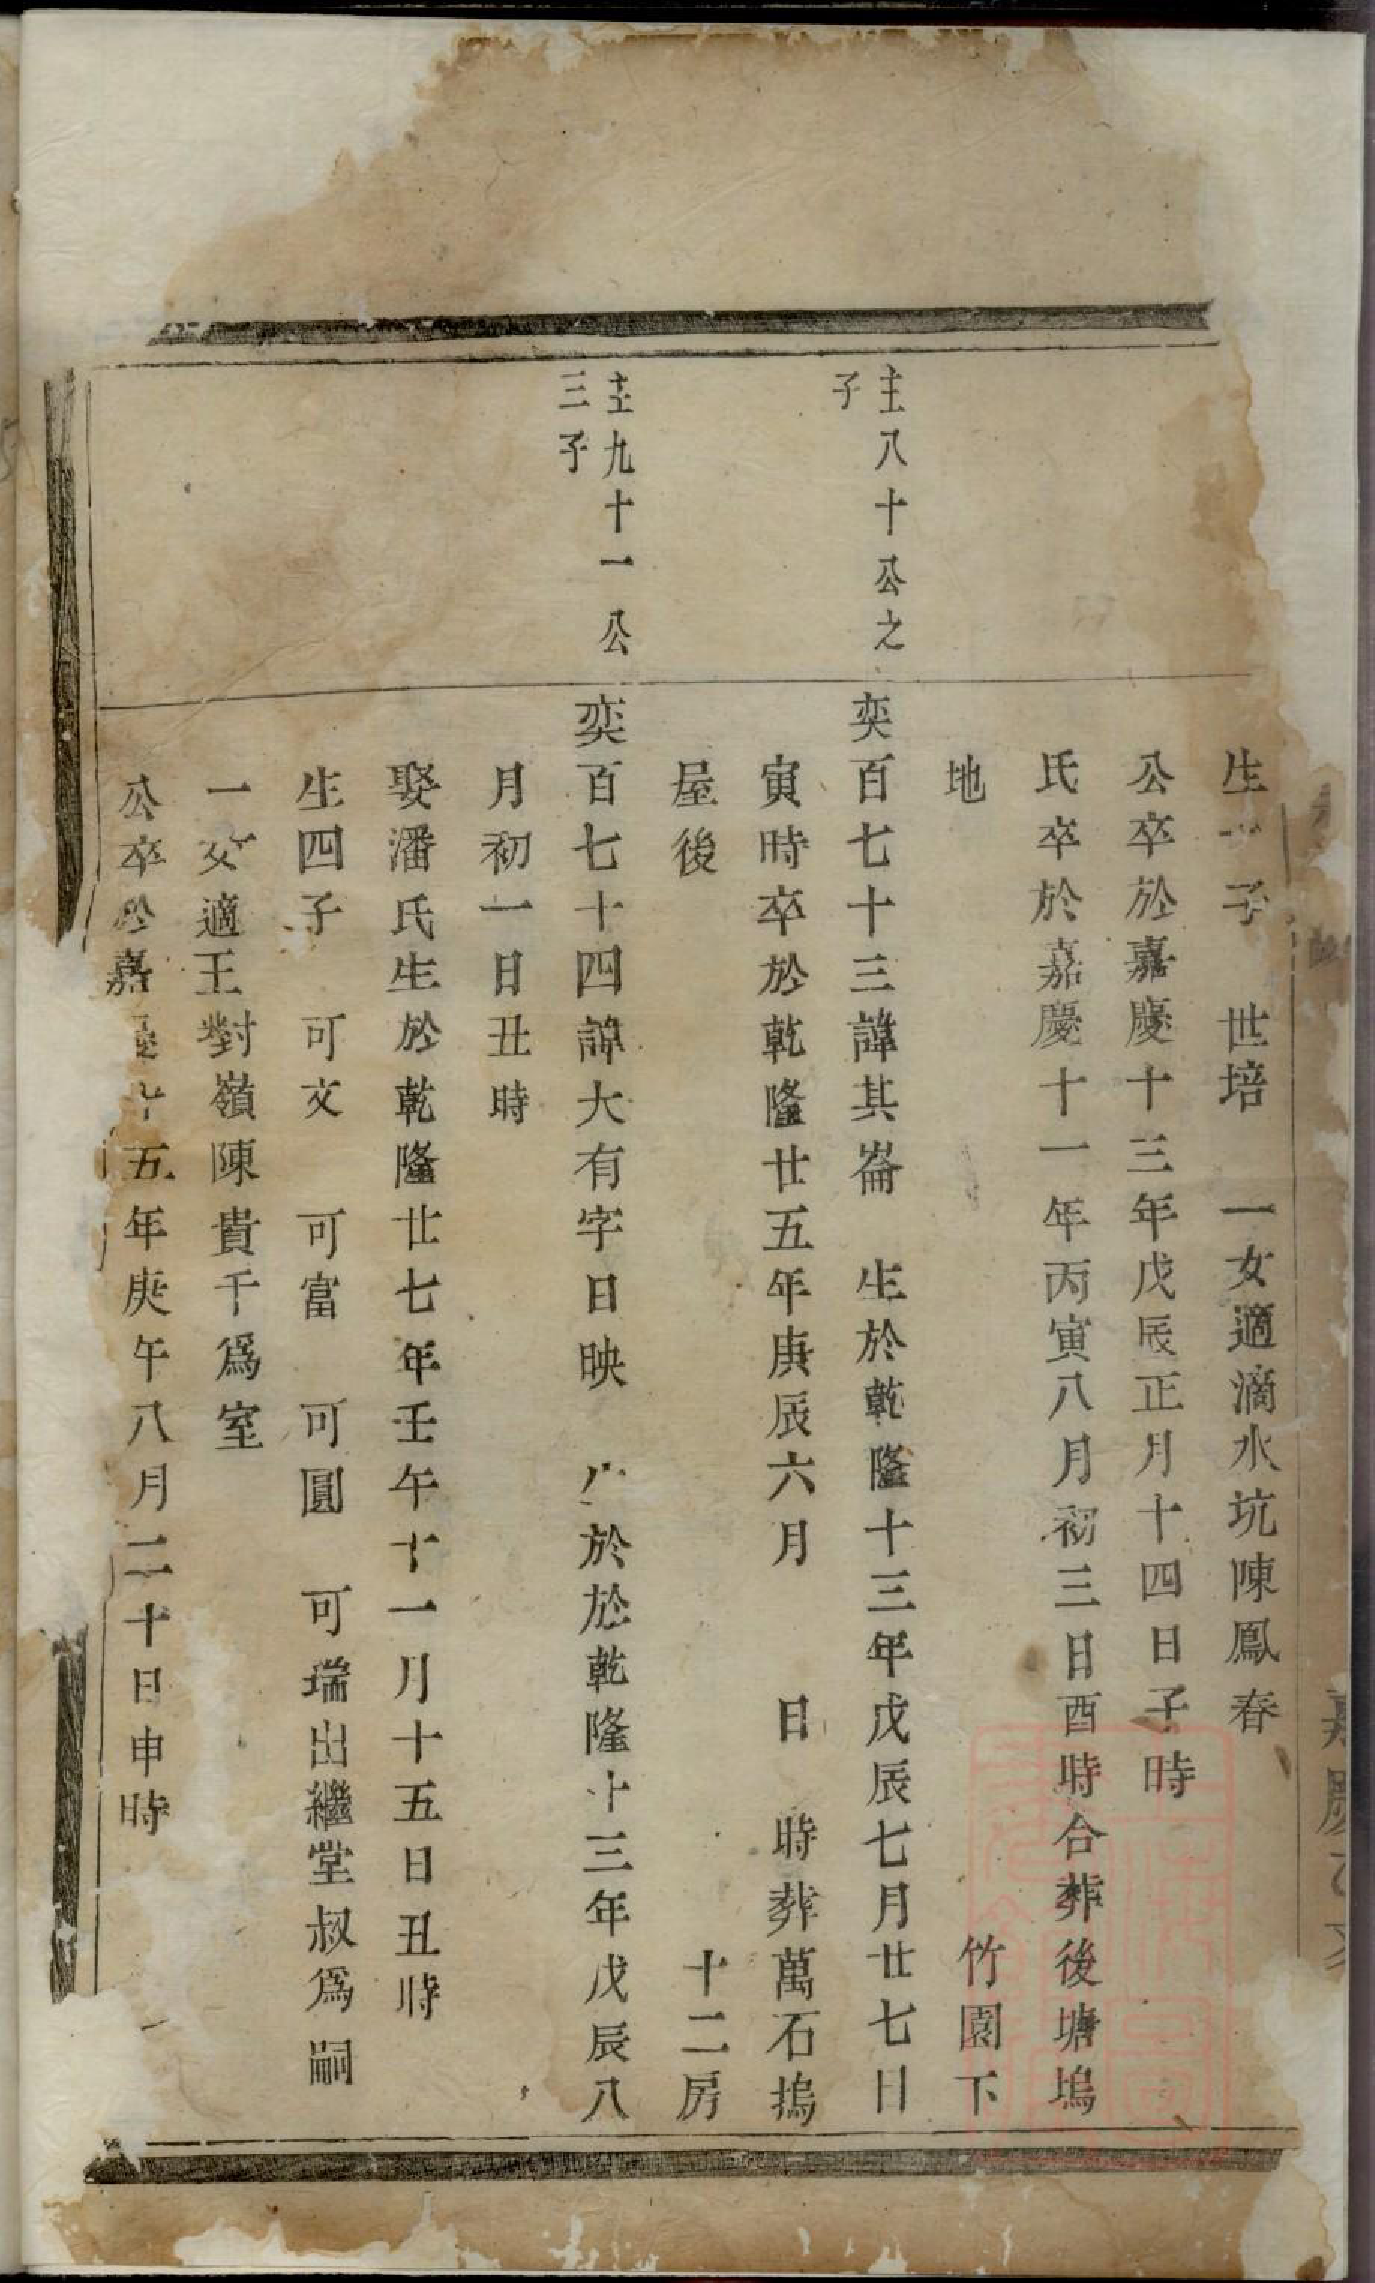 生一子　世培　一女適滴水坑陳鳳春
公卒於嘉慶十三年戊辰正月十四日子時
氏卒於嘉慶十一年丙寅八月初三日酉時合葬後塘塢
地　竹園下
主八十公之
子
奕百七十三諱其崙　生於乾隆十三年戊辰七月廿七日
寅時卒於乾隆廿五年庚辰六月　日　時葬萬石塢
屋後　十二房
主九十一公
三子
奕百七十四諱大有字日映　於於乾隆十三年戊辰八
月初一日丑時
娶潘氏生於乾隆廿七年壬午十一月十五日丑時
生四子　可文　可富　可圓　可瑞出繼堂叔爲嗣
一女適王對嶺陳貴千爲室
公卒於嘉慶十五年庚午八月二十日申時